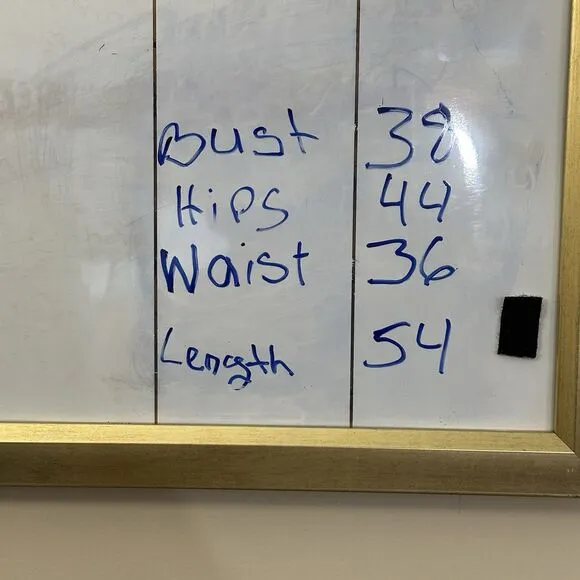 Bust 38
Hips 44
Waist 36
Length 54